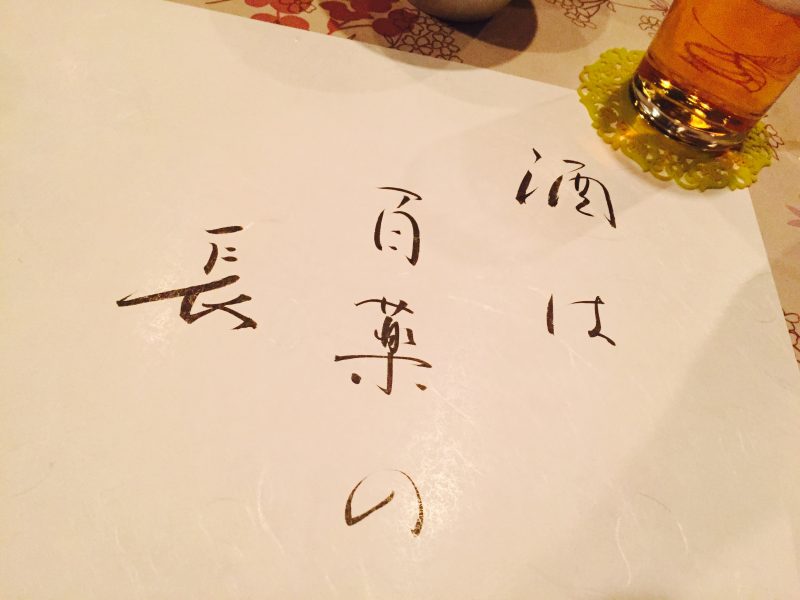 酒は
百薬の
長